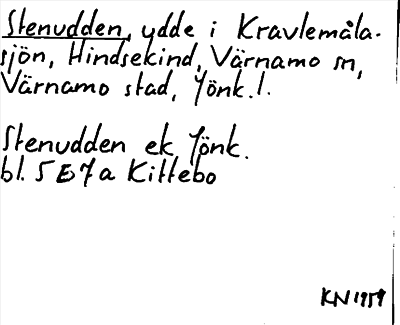 Stenudden, udde i Kravlemåla-
sjön, Hindsekind, Värnamo sn,
Värnamo stad, Jönk.l.
Stenudden ek Jönk.
bl. 5 E 7 a Kittebo
KN 1959